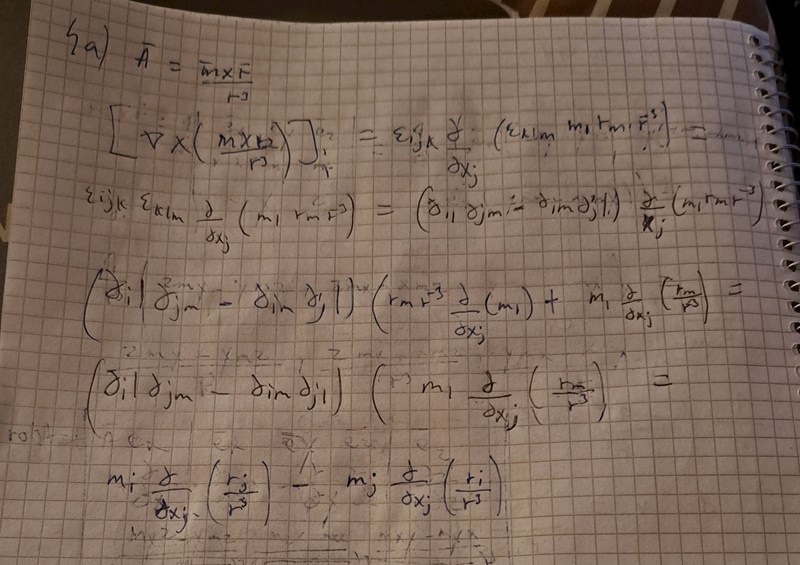 5a) Ā = m̄×r̄/r³
[∇×(m×r/r³)]ᵢ = εijk ∂/∂xj (εklm ml rm r⁻³) =
εijk εklm ∂/∂xj (ml rm r⁻³) = (δil δjm - δim δjl) ∂/xj (ml rm r⁻³)
(δil δjm - δim δjl) (rm r⁻³ ∂/∂xj (ml) + ml ∂/∂xj (rm/r³) =
(δil δjm - δim δjl) ( ml ∂/∂xj (rm/r³) =
mi ∂/∂xj (rj/r³) - mj ∂/∂xj (ri/r³)